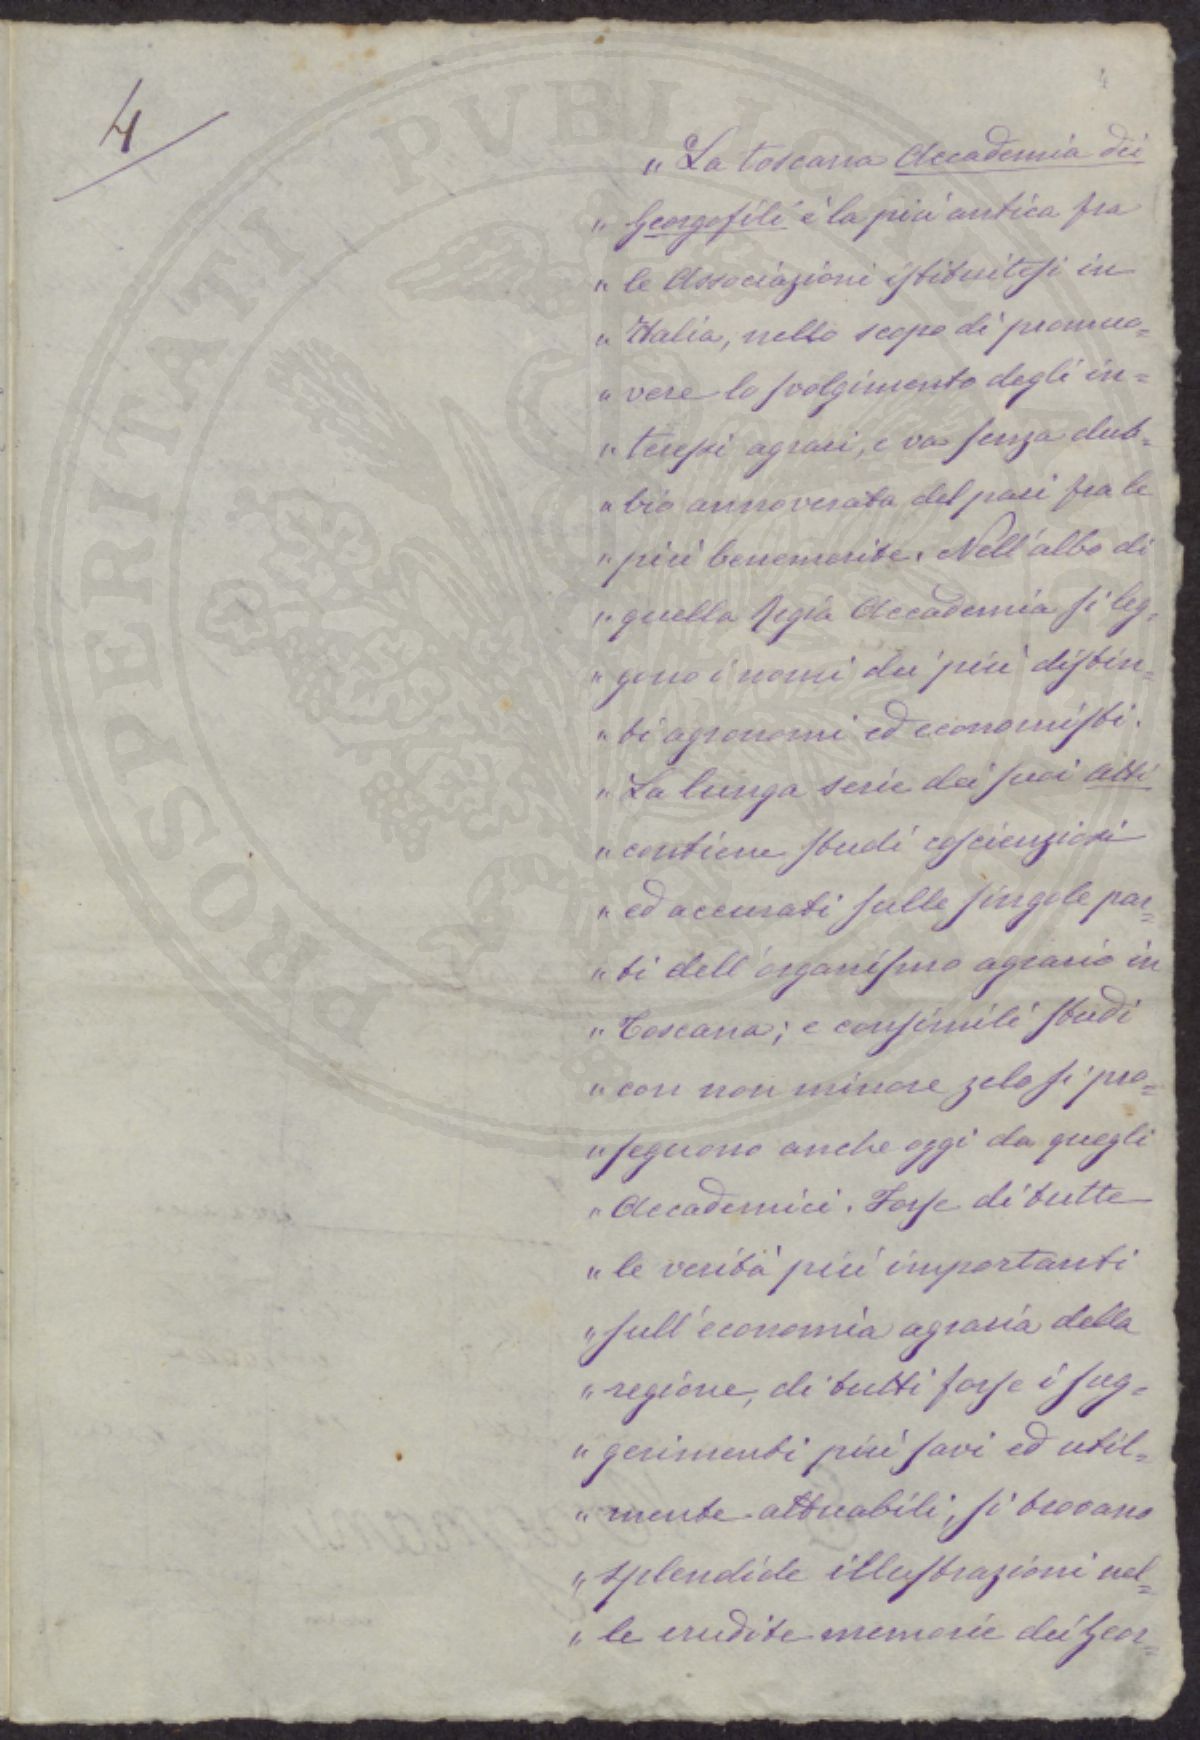 4
4
PROSPERITATI PVBLICAE
„ La toscana Accademia dei
„ Georgofili è la più antica fra
„ le Associazioni istituitesi in
„ Italia, nello scopo di promuo=
„ vere lo svolgimento degli in=
„ teressi agrari, e va senza dub=
„ bio annoverata del pari fra le
„ più benemerite. Nell'albo di
„ quella Regia Accademia si leg=
„ gono i nomi dei più distin=
„ ti agronomi ed economisti.
„ La lunga serie dei suoi atti
„ contiene studi coscienziosi
„ ed accurati sulle singole par=
„ ti dell'organismo agrario in
„ Toscana; e consimili studi
„ con non minore zelo si pro=
„ seguono anche oggi da quegli
„ Accademici. Forse di tutte
„ le verità più importanti
„ sull'economia agraria della
„ regione, di tutti forse i sug=
„ gerimenti più savi ed util=
„ mente attuabili, si trovano
„ splendide illustrazioni nel=
„ le erudite memorie dei Geor=